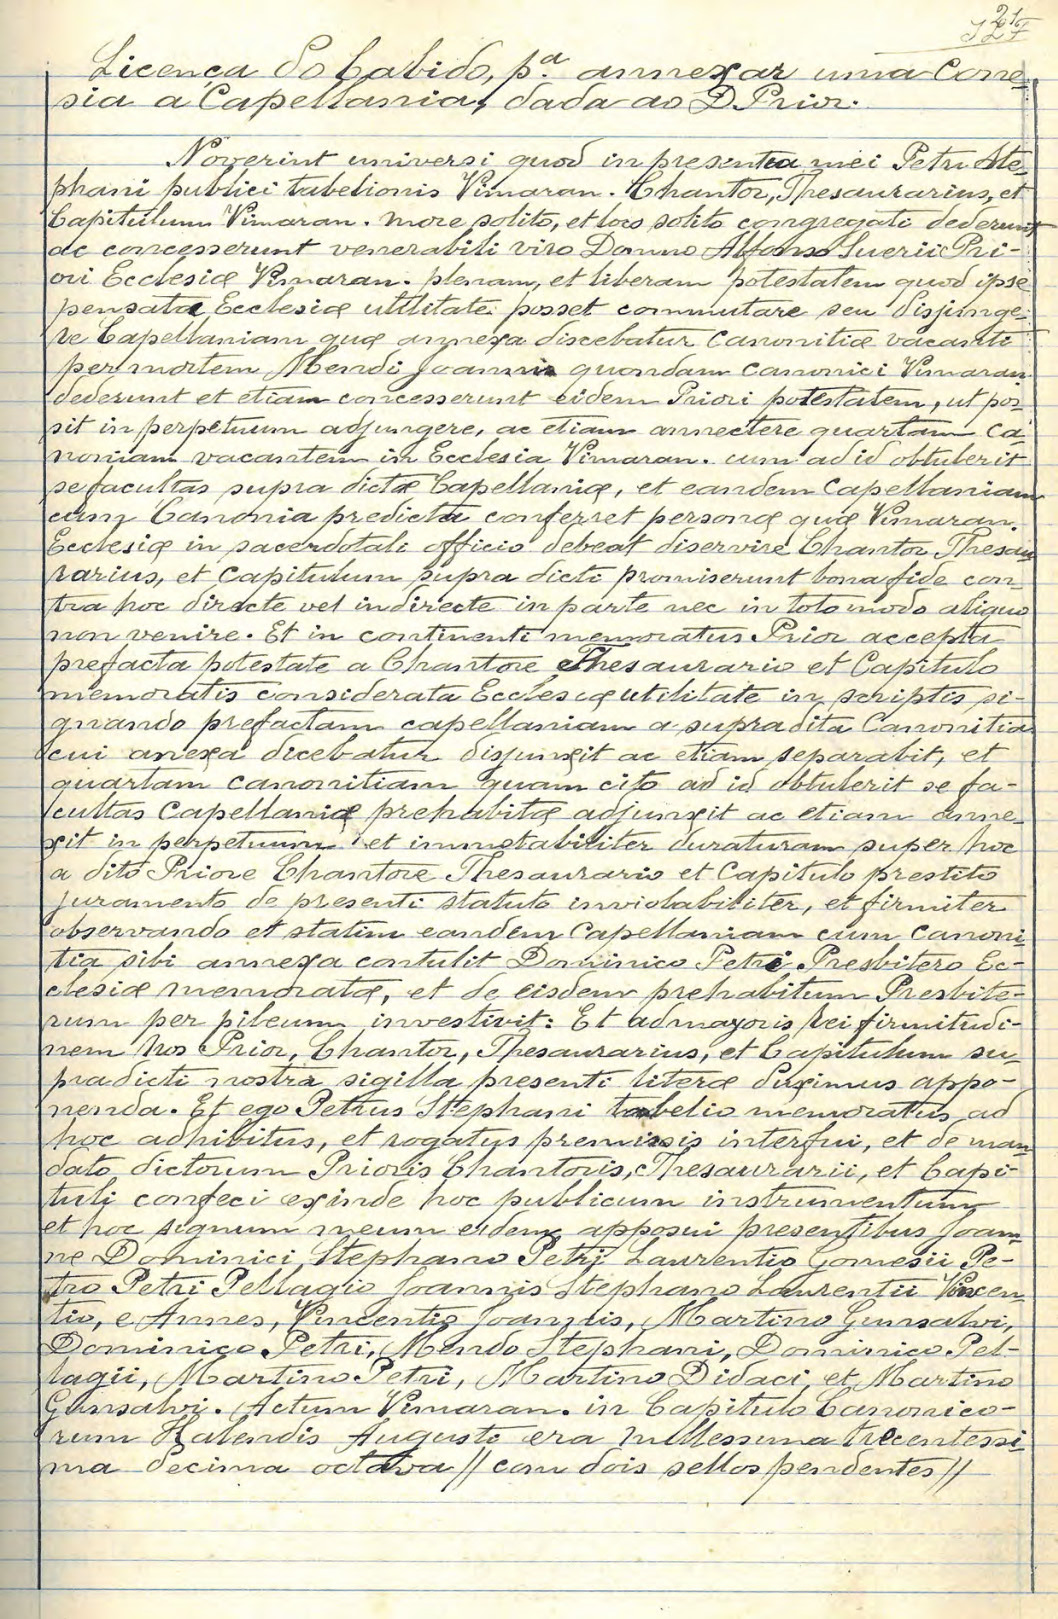 Licença do Cabido, pª. annexar uma Cone-
sia a Capellania, dada ao D. Prior.
Noverint universi quod in presentia mei Petri Ste-
phani publici tabelionis Vimaran. Chantor, Thesaurarius, et
Capitulum Vimaran. more solito, et loco solito congregati dederunt
ac concesserunt venerabili viro Domno Alfonso Suerii Pri-
ori Ecclesiæ Vimaran. plenam, et liberam potestatem quod ipse
pensata Ecclesiæ utilitate posset commutare seu disjunge-
re Capellaniam quæ annexa discebatur Canonitiæ vacanti
per mortem Mendi Joannis quondam canonici Vimaran.
dederunt et etiam concesserunt eidem Priori potestatem, ut pos-
sit in perpetuum adjungere, ac etiam annectere quartam Ca-
noniam vacantem in Ecclesia Vimaran. cum ad id obtulerit
se facultas supra dictæ Capellaniæ, et eandem Capellaniam
cum Canonia predicta conferret personæ quæ Vimaran.
Ecclesiæ in sacerdotali officio debeat diservire Chantor Thesau
rarius, et Capitulum supra dicti promiserunt bona fide con-
tra hoc directe vel indirecte in parte nec in toto modo aliquo
non venire. Et in continenti memoratus Prior accepta
prefacta potestate a Chantore Thesaurario et Capitulo
memoratis considerata Ecclesiæ utilitate in scriptis si-
gnando prefactam capellaniam a supra dita Canonitia
cui anexa dicebatur disjunxit ac etiam separabit, et
quartam canonitiam quam cito ad id obtulerit se fa-
cultas Capellaniæ prehabitæ adjunxit ac etiam anne-
xit in perpetuum et immotabiliter duraturam super hoc
a dito Priore Chantore Thesaurario et Capitulo prestito
juramento de presenti statuto inviolabiliter, et firmiter
observando et statim eandem Capellaniam cum canoni
tia sibi annexa contulit Dominico Petri Presbitero Ec-
clesiæ memoratæ, et de eisdem prehabitum Presbite-
rum per pileum investivit: Et ad mayoris rei firmitudi-
nem Nos Prior, Chantor, Thesaurarius, et Capitulum su-
pradicti nostra sigilla presenti literæ duximus appo-
nenda. Et ego Petrus Stephani tabelio memoratus ad
hoc adhibitus, et rogatus premissis interfui, et de man
dato dictorum Prioris Chantoris, Thesaurarii, et Capi-
tuli confeci exinde hoc publicum instrumentum
et hoc signum meum eidem apposui presentibus Joan
ne Dominici, Stephano Petrj Laurentio Gomesii Pe-
tro Petri Pellagio Joannis Stephano Laurentii Vincen
tio, e Annes, Vincentio Joannis, Martino Gunsalvi,
Dominico Petri, Mendo Stephani, Dominico Pel-
lagii, Martino Petri, Martino Didaci, et Martino
Gunsalvi. Actum Vimaran. in Capitulo Canonico-
rum Kalendis Augusti era millessima trecentessi-
ma decima octava // com dois sellos pendentes //